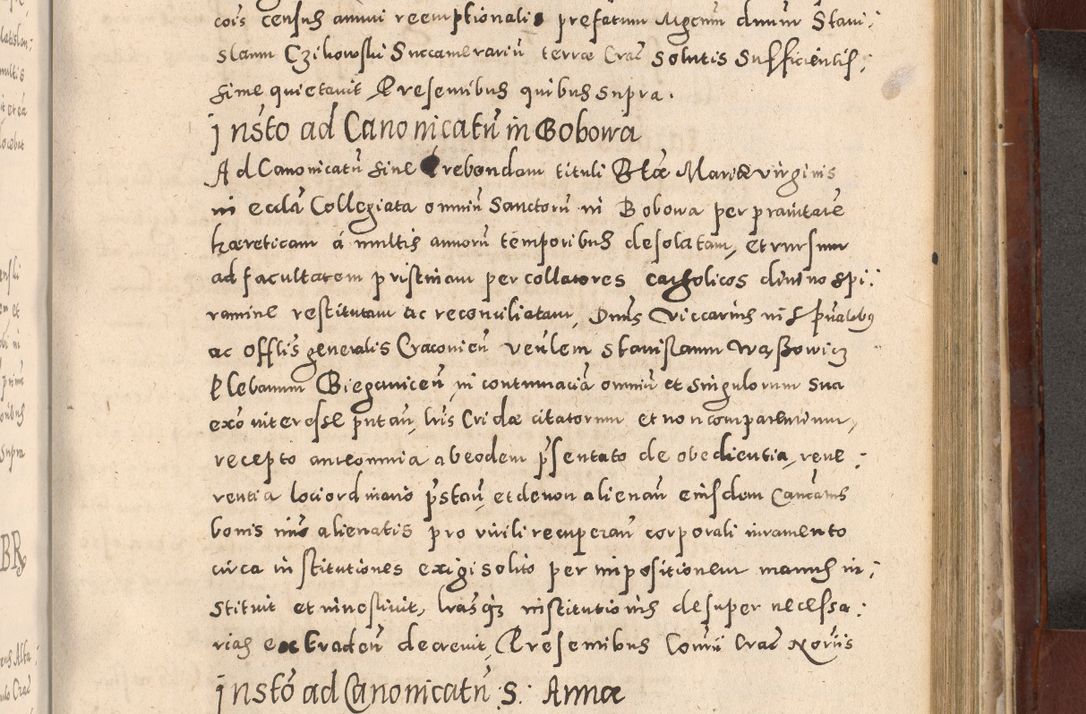 cois census annui reemptionalis prefatum Mgcum dnum Stani:
slaum Czikowski Succamerariū terræ Crac̄ solutis sufficientis:
sime quietauit, Presentibus quibus supra.
Insto ad Canonicatū in Bobowa
Ad Canonicatū siue Prebendam tituli Btæ Mariæ virginis
in eccla Collegiata omniū Sanctorū in Bobowa per prauitatē
hæreticam á multis annorū temporibus desolatam, et rursum
ad facultatem pristinam per collatores catholicos diuino spi:
ramine restitutam ac reconciliatam, Dnus Viccarius in spūalibus
ac offlis generalis Cracouien̄ venlem Stanislaum Waßowicz
Plebanum Bieganicen̄, in contumaciā omniū et singulorum sua
exo interesse putan̄, lris Cridæ citatorum et non comparentium,
recepto ante omnia ab eodem pr̄sentato de obedientia, reue:
rentia loci ordinario pr̄stan̄, et de non alienan̄ eiusdem Canctus
bonis imo alienatis pro virili recuperan̄ corporali iuramento
circa institutiones exigi solito per impositionem manus in:
stituit et inuestiuit, lrasq3 institutionis desuper necessa:
rias extraden̄ decreuit, Presentibus Comii Crac̄ Noriis
Insto ad Canonicatū S: Annæ